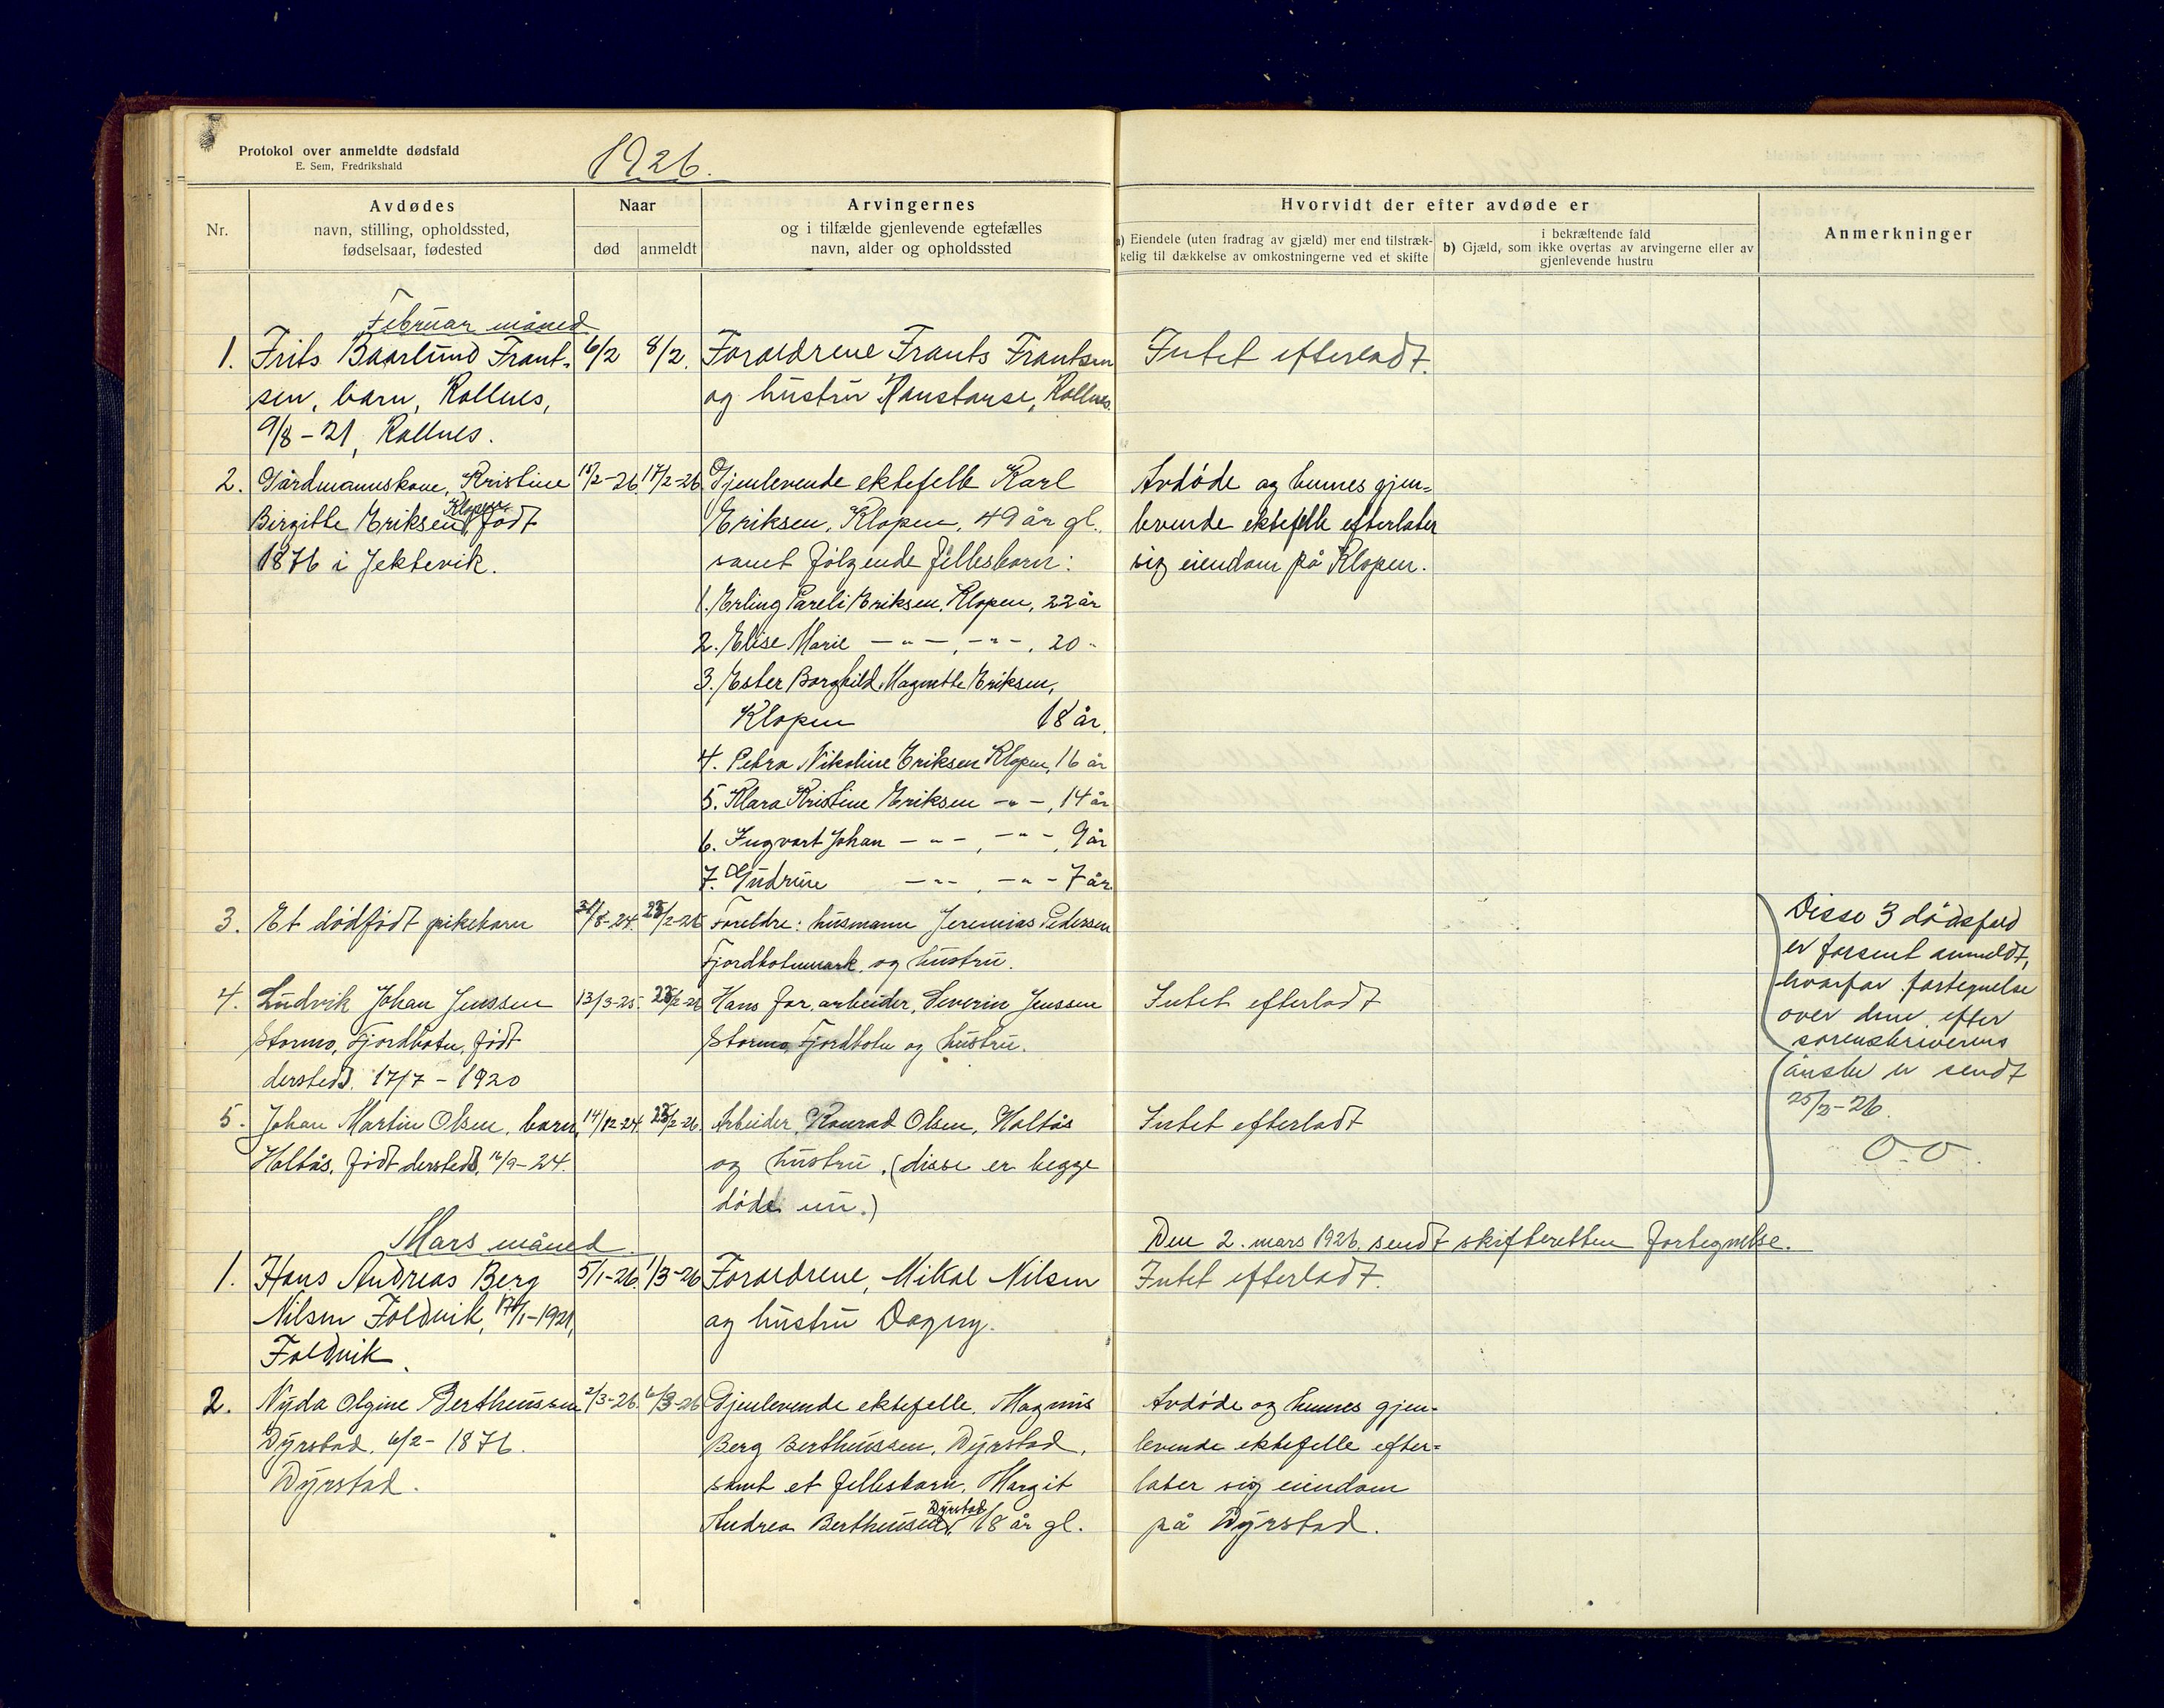 Protokol over anmeldte dødsfald
E. Sem, Fredrikshald
1926.
Nr.
Avdødes
navn, stilling, opholdssted,
fødselsaar, fødested
Naar
død
anmeldt
Arvingernes
og i tilfælde gjenlevende egtefælles
navn, alder og opholdssted
Hvorvidt der efter avdøde er
a) Eiendele (uten fradrag av gjæld) mer end tilstræk-
kelig til dækkelse av omkostningerne ved et skifte
i bekræftende fald
b) Gjæld, som ikke overtas av arvingerne eller av
gjenlevende hustru
Anmerkninger
Februar måned
1. Frits Baarlund Frant- 6/2 8/2. Foreldrene Frants Frantsen Intet efterladt.
sen, barn, Rollnes, og hustru Konstanse, Rollnes.
9/8-21, Rollnes.
2. Gårdmannskone, Kristine 15/2-26 17/2-26 Gjenlevende ektefelle Karl Avdøde og hennes gjen-
Birgitte Eriksen, Klopen, født Eriksen, Klopen, 49 år gl. levende ektefelle efterlater
1876 i Jektevik. samt følgende fellesbarn: sig eiendom på Klopen.
1. Erling Pareli Eriksen, Klopen, 22 år
2. Elise Marie —"—, —"—, 20 "
3. Ester Borghild Magnette Eriksen,
Klopen 18 år.
4. Petra Nikoline Eriksen Klopen, 16 år
5. Klara Kristine Eriksen —"—, 14 år
6. Ingvart Johan —"—, —"—, 9 år
7. Gudrun —"—, —"— 7 år
3. Et dødfødt pikebarn /8-24. 25/2-26 Foreldre: husmann Jeremias Pedersen
Fjordbotnmark, og hustru.
4. Ludvik Johan Jenssen 13/3-25. 25/2-26 Hans far, arbeider, Severin Jenssen Intet efterladt
Stormo, Fjordbotn, født Stormo, Fjordbotn og hustru.
dersteds. 17/7-1920
5. Johan Martin Olsen, barn, 14/12-24. 25/2-26. Arbeider Konrad Olsen, Holtås Intet efterladt
Holtås, født dersteds, 16/9-24. og hustru. (disse er begge
døde nu.)
Disse 3 dødsfald
er forsent anmeldt,
hvorfor fortegnelse
over dem, efter
sorenskriverens
ønske er sendt
25/2-26.
Mars måned.
Den 2. mars 1926. sendt skifteretten fortegnelse.
1. Hans Andreas Berg 5/1-26. 1/3-26 Foreldrene, Mikal Nilsen Intet efterladt.
Nilsen Foldvik, 17/1-1921, og hustru Dagny.
Foldvik.
2. Nyda Olgine Bertheussen 2/3-26. 6/3-26 Gjenlevende ektefelle, Magnus Avdøde og hennes gjen-
Dyrstad, 6/2-1876. Berg Bertheussen, Dyrstad, levende ektefelle efter-
Dyrstad. samt et fellesbarn, Margit later sig eiendom
Andrea Bertheussen, Dyrstad 18 år gl. på Dyrstad.